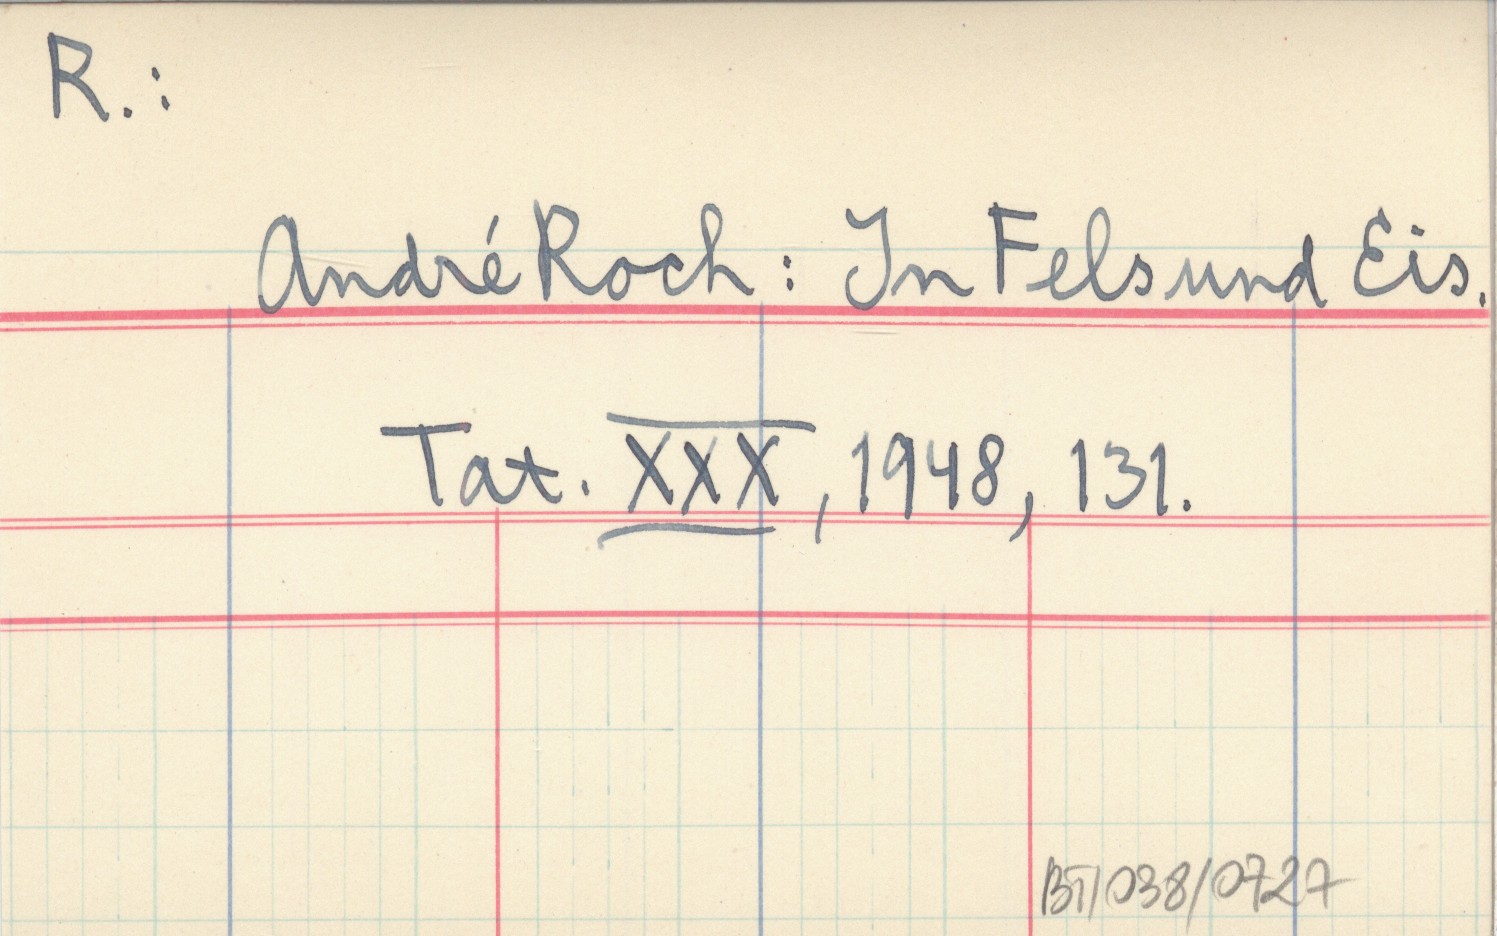 R.:
André Roch: In Fels und Eis.
Tat. XXX, 1948, 131.
BT/038/0727